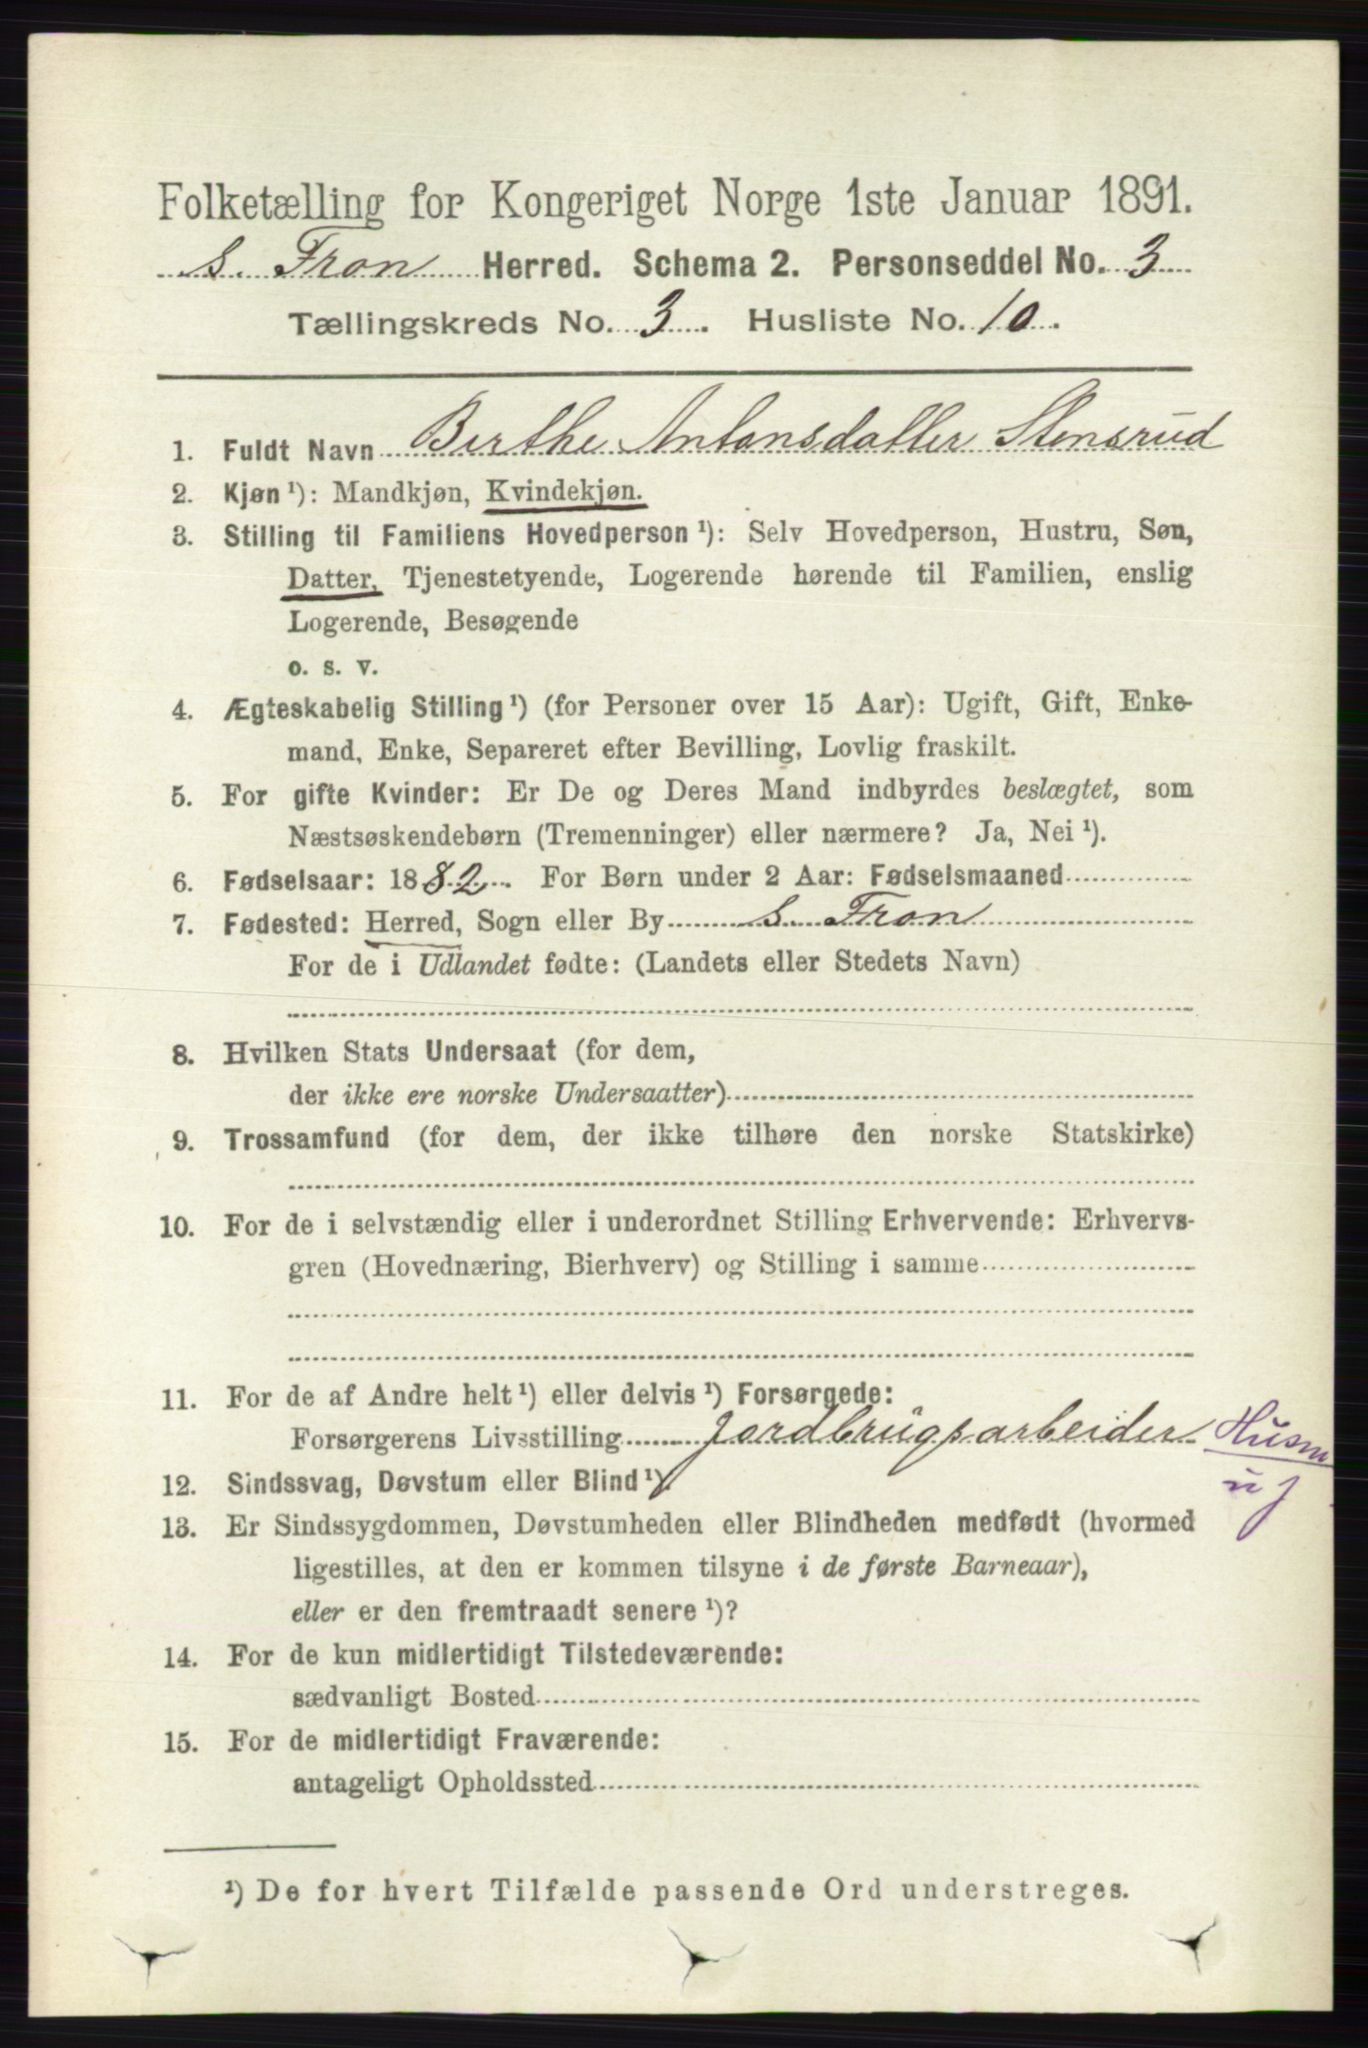 Folketælling for Kongeriget Norge 1ste Januar 1891.
S. Fron Herred. Schema 2. Personseddel No. 3
Tællingskreds No. 3. Husliste No. 10.
1. Fuldt Navn Berthe Antonsdatter Stensrud
2. Kjøn ¹): Mandkjøn, Kvindekjøn.
3. Stilling til Familiens Hovedperson ¹): Selv Hovedperson, Hustru, Søn,
Datter, Tjenestetyende, Logerende hørende til Familien, enslig
Logerende, Besøgende
o. s. v.
4. Ægteskabelig Stilling ¹) (for Personer over 15 Aar): Ugift, Gift, Enke-
mand, Enke, Separeret efter Bevilling, Lovlig fraskilt.
5. For gifte Kvinder: Er De og Deres Mand indbyrdes beslægtet, som
Næstsøskendebørn (Tremenninger) eller nærmere? Ja, Nei ¹).
6. Fødselsaar: 1882. For Børn under 2 Aar: Fødselsmaaned
7. Fødested: Herred, Sogn eller By S. Fron
For de i Udlandet fødte: (Landets eller Stedets Navn)
8. Hvilken Stats Undersaat (for dem,
der ikke ere norske Undersaatter)
9. Trossamfund (for dem, der ikke tilhøre den norske Statskirke)
10. For de i selvstændig eller i underordnet Stilling Erhvervende: Erhvervs-
gren (Hovednæring, Bierhverv) og Stilling i samme
11. For de af Andre helt ¹) eller delvis ¹) Forsørgede:
Forsørgerens Livsstilling Jordbrugsarbeider Husm
12. Sindssvag, Døvstum eller Blind ¹).
13. Er Sindssygdommen, Døvstumheden eller Blindheden medfødt (hvormed
ligestilles, at den er kommen tilsyne i de første Barneaar),
eller er den fremtraadt senere ¹)?
14. For de kun midlertidigt Tilstedeværende:
sædvanligt Bosted
15. For de midlertidigt Fraværende:
antageligt Opholdssted
¹) De for hvert Tilfælde passende Ord understreges.